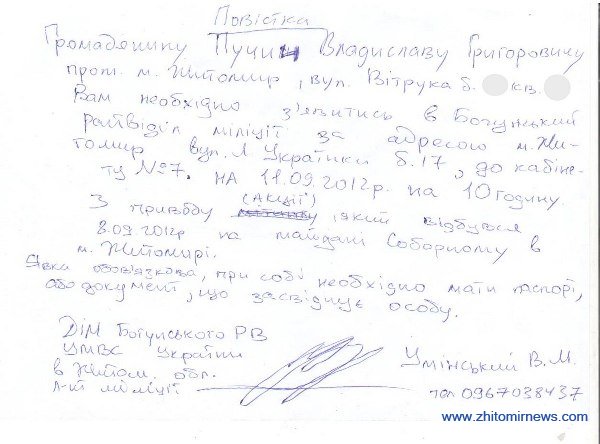 Повістка
Громадянину Пучин Владиславу Григоровичу
прож. м. Житомир, вул. Вітрука б. кв.
Вам необхідно з'явитись в Богунський
райвідділ міліції за адресою м. Жи-
томир вул. Л. Українки б. 17, до кабіне-
ту №7. на 11.09.2012р. на 10 годину.
(АКЦІЇ)
З приводу мітингу, який відбувся
8.09.2012р на майдані Соборному в
м. Житомирі.
Явка обов'язкова, при собі необхідно мати паспорт,
або документ, що засвідчує особу.
ДІМ Богунського РВ
УМВС України
в Житом. обл.
л-т міліції
Умінський В.М.
тел 0967038437
www.zhitomirnews.com